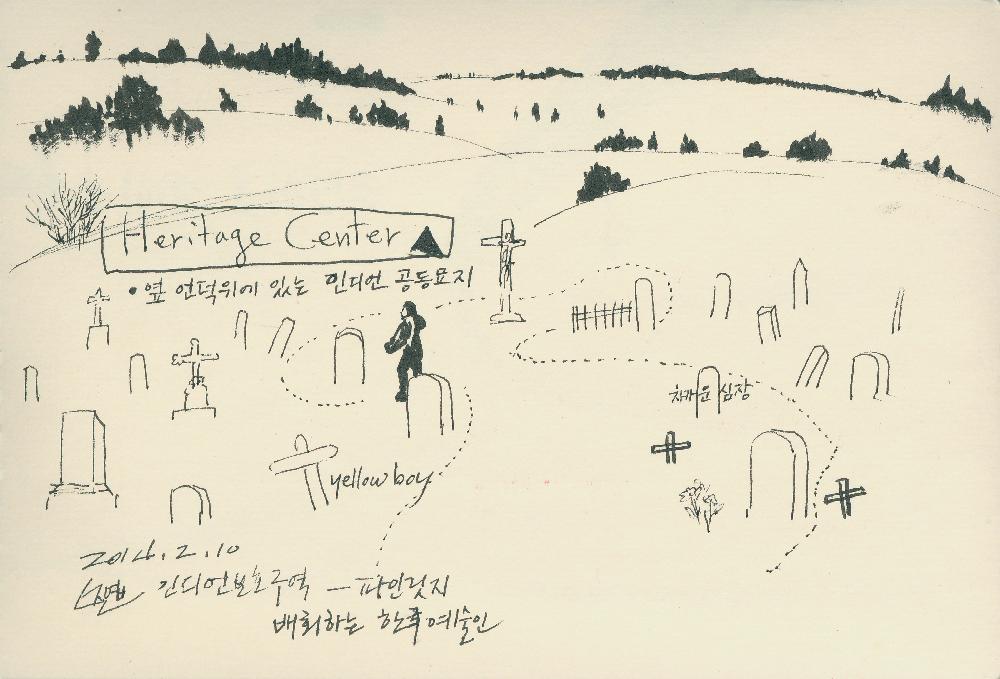 Heritage Center
• 옆 언덕위에 있는 인디언 공동묘지
차가운 심장
yellow boy
2.10
인디언보호구역 — 파인릿지
배회하는 한국예술인